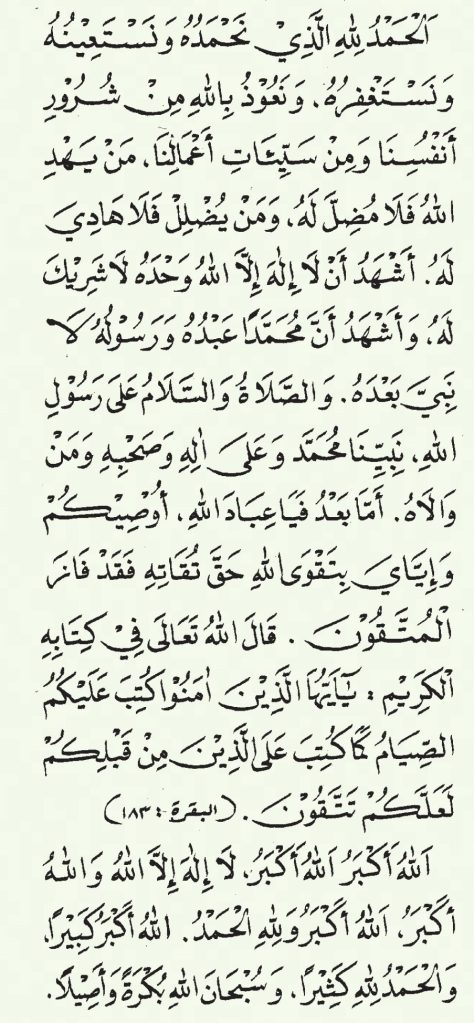 اَلْحَمْدُ لِلّٰهِ الَّذِيْ نَحْمَدُهُ وَنَسْتَعِيْنُهُ
وَنَسْتَغْفِرُهُ، وَنَعُوْذُ بِاللهِ مِنْ شُرُوْرِ
أَنْفُسِنَا وَمِنْ سَيِّئَاتِ أَعْمَالِنَا، مَنْ يَهْدِ
اللهُ فَلَا مُضِلَّ لَهُ، وَمَنْ يُضْلِلْ فَلَا هَادِيَ
لَهُ. أَشْهَدُ أَنْ لَا إِلٰهَ إِلَّا اللهُ وَحْدَهُ لَا شَرِيْكَ
لَهُ، وَأَشْهَدُ أَنَّ مُحَمَّدًا عَبْدُهُ وَرَسُوْلُهُ لَا
نَبِيَّ بَعْدَهُ. وَالصَّلَاةُ وَالسَّلَامُ عَلَى رَسُوْلِ
اللهِ، نَبِيِّنَا مُحَمَّدَ وَعَلَى اٰلِهِ وَصَحْبِهِ وَمَنْ
وَالَاهُ. أَمَّا بَعْدُ فَيَا عِبَادَ اللهِ، أُوْصِيْكُمْ
وَإِيَّايَ بِتَقْوَى اللهِ حَقَّ تُقَاتِهِ فَقَدْ فَازَ
الْمُتَّقُوْنَ. قَالَ اللهُ تَعَالَى فِيْ كِتَابِهِ
الْكَرِيْمِ: يٰٓاَيُّهَا الَّذِيْنَ اٰمَنُوْا كُتِبَ عَلَيْكُمُ
الصِّيَامُ كَمَا كُتِبَ عَلَى الَّذِيْنَ مِنْ قَبْلِكُمْ
لَعَلَّكُمْ تَتَّقُوْنَ. (البقرة: ١٨٣)
اَللهُ أَكْبَرُ اَللهُ أَكْبَرُ، لَا إِلٰهَ إِلَّا اللهُ وَاللهُ
أَكْبَرُ، اَللهُ أَكْبَرُ وَلِلّٰهِ الْحَمْدُ. اَللهُ أَكْبَرُ كَبِيْرًا،
وَالْحَمْدُ لِلّٰهِ كَثِيْرًا، وَسُبْحَانَ اللهِ بُكْرَةً وَأَصِيْلًا.